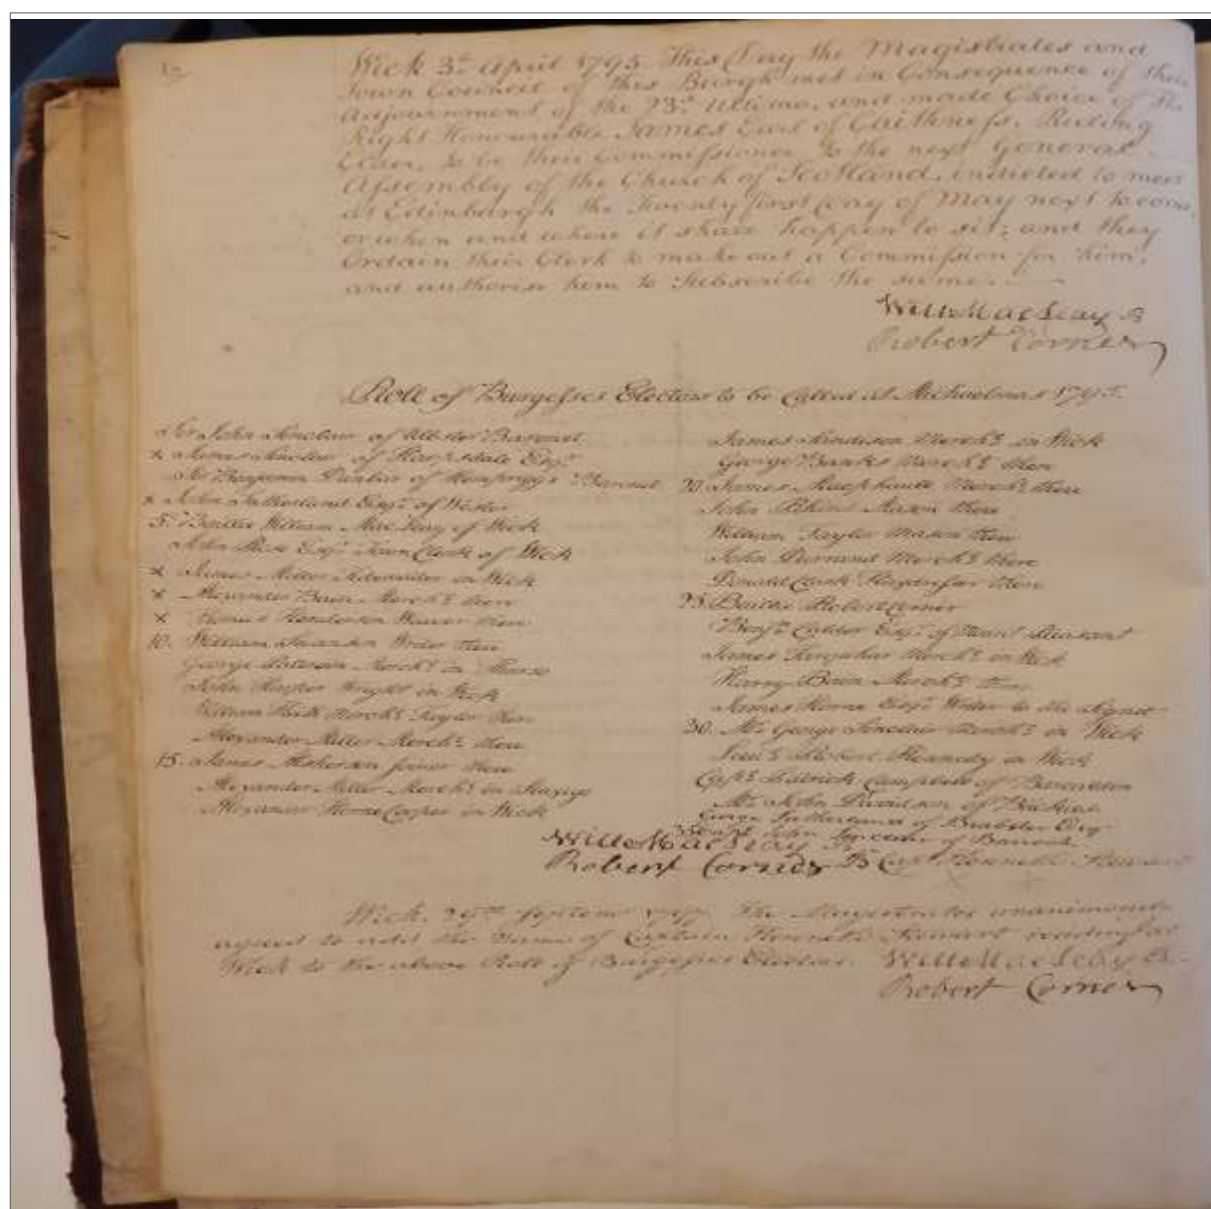 Wick 3d. April 1795. This Day the Magistrates and
Town Council of this Burgh met in Consequence of their
adjournment of the 23d. Ultimo, and made Choice of the
Right Honourable James Earl of Caithness, Ruling
Elder, to be their Commissioner to the next General
Assembly of the Church of Scotland, indicted to meet
at Edinburgh the Twenty first day of May next to come,
or when and where it shall happen to sit; and they
Ordain their Clerk to make out a Commission for him,
and authorise him to Subscribe the same.
Will: MacLeay B
Robert Corner
Roll of Burgesses Electors to be Called at Michaelmas 1795.
Sir John Sinclair of Ulbster Baronet
x James Sinclair of Harpsdale Esqr.
Sir Benjamin Dunbar of Hempriggs Baronet
x John Sutherland Esqr. of Wester
5. Bailie William MacLeay of Wick
John Rose Esqr. Town Clerk of Wick
x James Miller in Wick
x Alexander Bain Mercht. there
x Thomas Henderson Weaver there
10. William Swanson Writer there
George Paterson Mercht. in Thurso
John Harper Wright in Wick
William Keith Mercht. Taylor there
Alexander Miller Mercht. there
15. James joiner there
Alexander Miller Mercht. in Staxigo
Alexander Horne Cooper in Wick
James Sandison Mercht. in Wick
George Banks Mercht. there
20. James Macphaile Mercht. there
John Mason there
William Taylor Mason there
John Durrand Mercht. there
Donald Clunk there
25. Bailie Robert Corner
Benjn. Calder Esqr. of Mount Pleasant
James Farquhar Mercht. in Wick
Harry Bain Mercht. there
James Horne Esqr. Writer to the Signet
30. Mr. George Sinclair Mercht. in Wick
Lieut. Robert Kennedy in Wick
Capt. Patrick Campbell of
Mr. John Davidson of Buckies
George Sutherland of Brabster Esqr
35 John of Barrock
Will: MacLeay B
Robert Corner B Capt. Kenneth Stewart
Wick, 29th. September 1795. The Magistrates unanimously
agreed to add the Name of Captain Kenneth Stewart residing at
Wick to the above Roll of Burgesses Electors. Will: MacLeay B.
Robert Corner